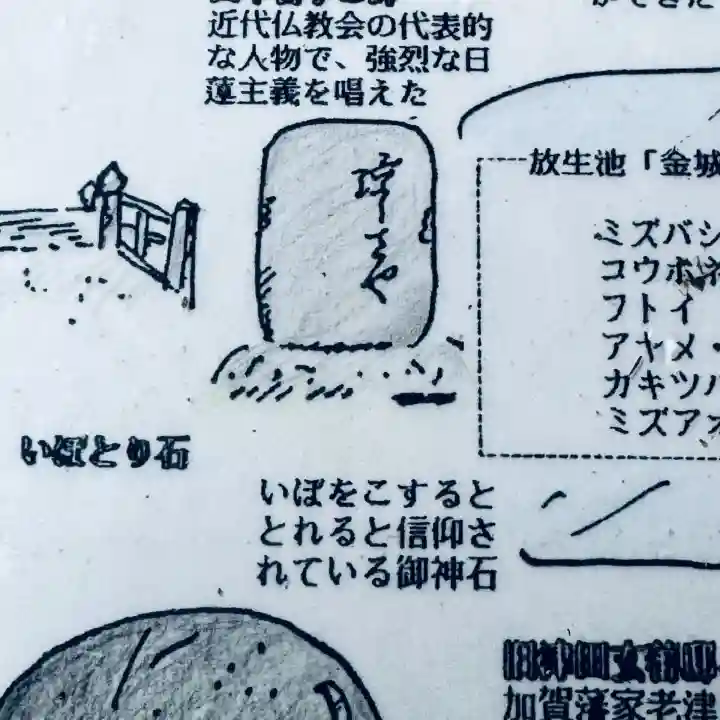 近代仏教会の代表的
な人物で、強烈な日
蓮主義を唱えた
放生池「金城
ミズバシ
コウホネ
フトイ
アヤメ・
カキツバ
ミズアオ
いぼとり石
いぼをこすると
とれると信仰さ
れている御神石
加賀藩家老津